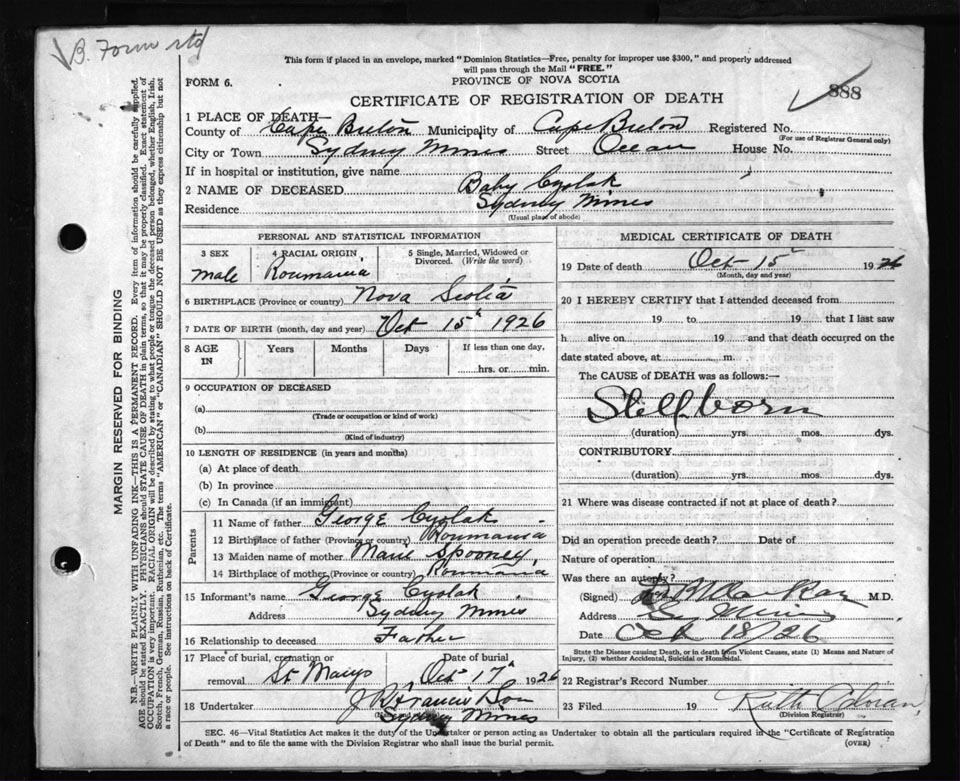 B. Form std
This form if placed in an envelope, marked "Dominion Statistics—Free, penalty for improper use $300," and properly addressed
will pass through the Mail "FREE."
FORM 6.
PROVINCE OF NOVA SCOTIA
CERTIFICATE OF REGISTRATION OF DEATH
888
1 PLACE OF DEATH—
County of Cape Breton Municipality of Cape Breton Registered No.
(For use of Registrar General only)
City or Town Sydney Mines Street Ocean House No.
If in hospital or institution, give name
2 NAME OF DECEASED Baby Cyolak
Residence Sydney Mines
(Usual place of abode)
PERSONAL AND STATISTICAL INFORMATION
3 SEX 4 RACIAL ORIGIN 5 Single, Married, Widowed or
Divorced. (Write the word)
male Roumania
6 BIRTHPLACE (Province or country) Nova Scotia
7 DATE OF BIRTH (month, day and year) Oct 15th 1926
8 AGE IN Years Months Days If less than one day,
hrs. or min.
9 OCCUPATION OF DECEASED
(a)
(Trade or occupation or kind of work)
(b)
(Kind of industry)
10 LENGTH OF RESIDENCE (in years and months)
(a) At place of death
(b) In province
(c) In Canada (if an immigrant)
Parents
11 Name of father George Cyolak
12 Birthplace of father (Province or country) Roumania
13 Maiden name of mother Marie Spooney
14 Birthplace of mother (Province or country) Roumania
15 Informant's name George Cyolak
Address Sydney Mines
16 Relationship to deceased Father
17 Place of burial, cremation or Date of burial
removal St Marys Oct 17th 1926
18 Undertaker J R Francis Son
Sydney Mines
MEDICAL CERTIFICATE OF DEATH
19 Date of death Oct 15th 1926
(Month, day and year)
20 I HEREBY CERTIFY that I attended deceased from
19 to 19 that I last saw
h alive on 19 and that death occurred on the
date stated above, at m.
The CAUSE of DEATH was as follows:—
Stillborn
(duration) yrs. mos. dys.
CONTRIBUTORY
(duration) yrs. mos. dys.
21 Where was disease contracted if not at place of death?
Did an operation precede death? Date of
Nature of operation
Was there an autopsy?
(Signed) M.D.
Address Sy Mines
Date Oct 18/26
State the Disease causing Death, or in death from Violent Causes, state (1) Means and Nature of
Injury, (2) whether Accidental, Suicidal or Homicidal.
22 Registrar's Record Number
23 Filed 19 Ruth
(Division Registrar)
SEC. 46—Vital Statistics Act makes it the duty of the Undertaker or person acting as Undertaker to obtain all the particulars required in the "Certificate of Registration
of Death" and to file the same with the Division Registrar who shall issue the burial permit.
(OVER)
MARGIN RESERVED FOR BINDING
N.B.—WRITE PLAINLY WITH UNFADING INK—THIS IS A PERMANENT RECORD. Every item of information should be carefully supplied.
AGE should be stated EXACTLY. PHYSICIANS should STATE CAUSE OF DEATH in plain terms, so that it may be properly classified. Exact statement of
OCCUPATION is very important. RACIAL ORIGIN will be described by stating to what people or tongue the deceased person belonged, whether English, Irish,
Scotch, French, German, Russian, Ruthenian, etc. The terms "AMERICAN" or "CANADIAN" SHOULD NOT BE USED as they express citizenship but not
a race or people. See instructions on back of Certificate.